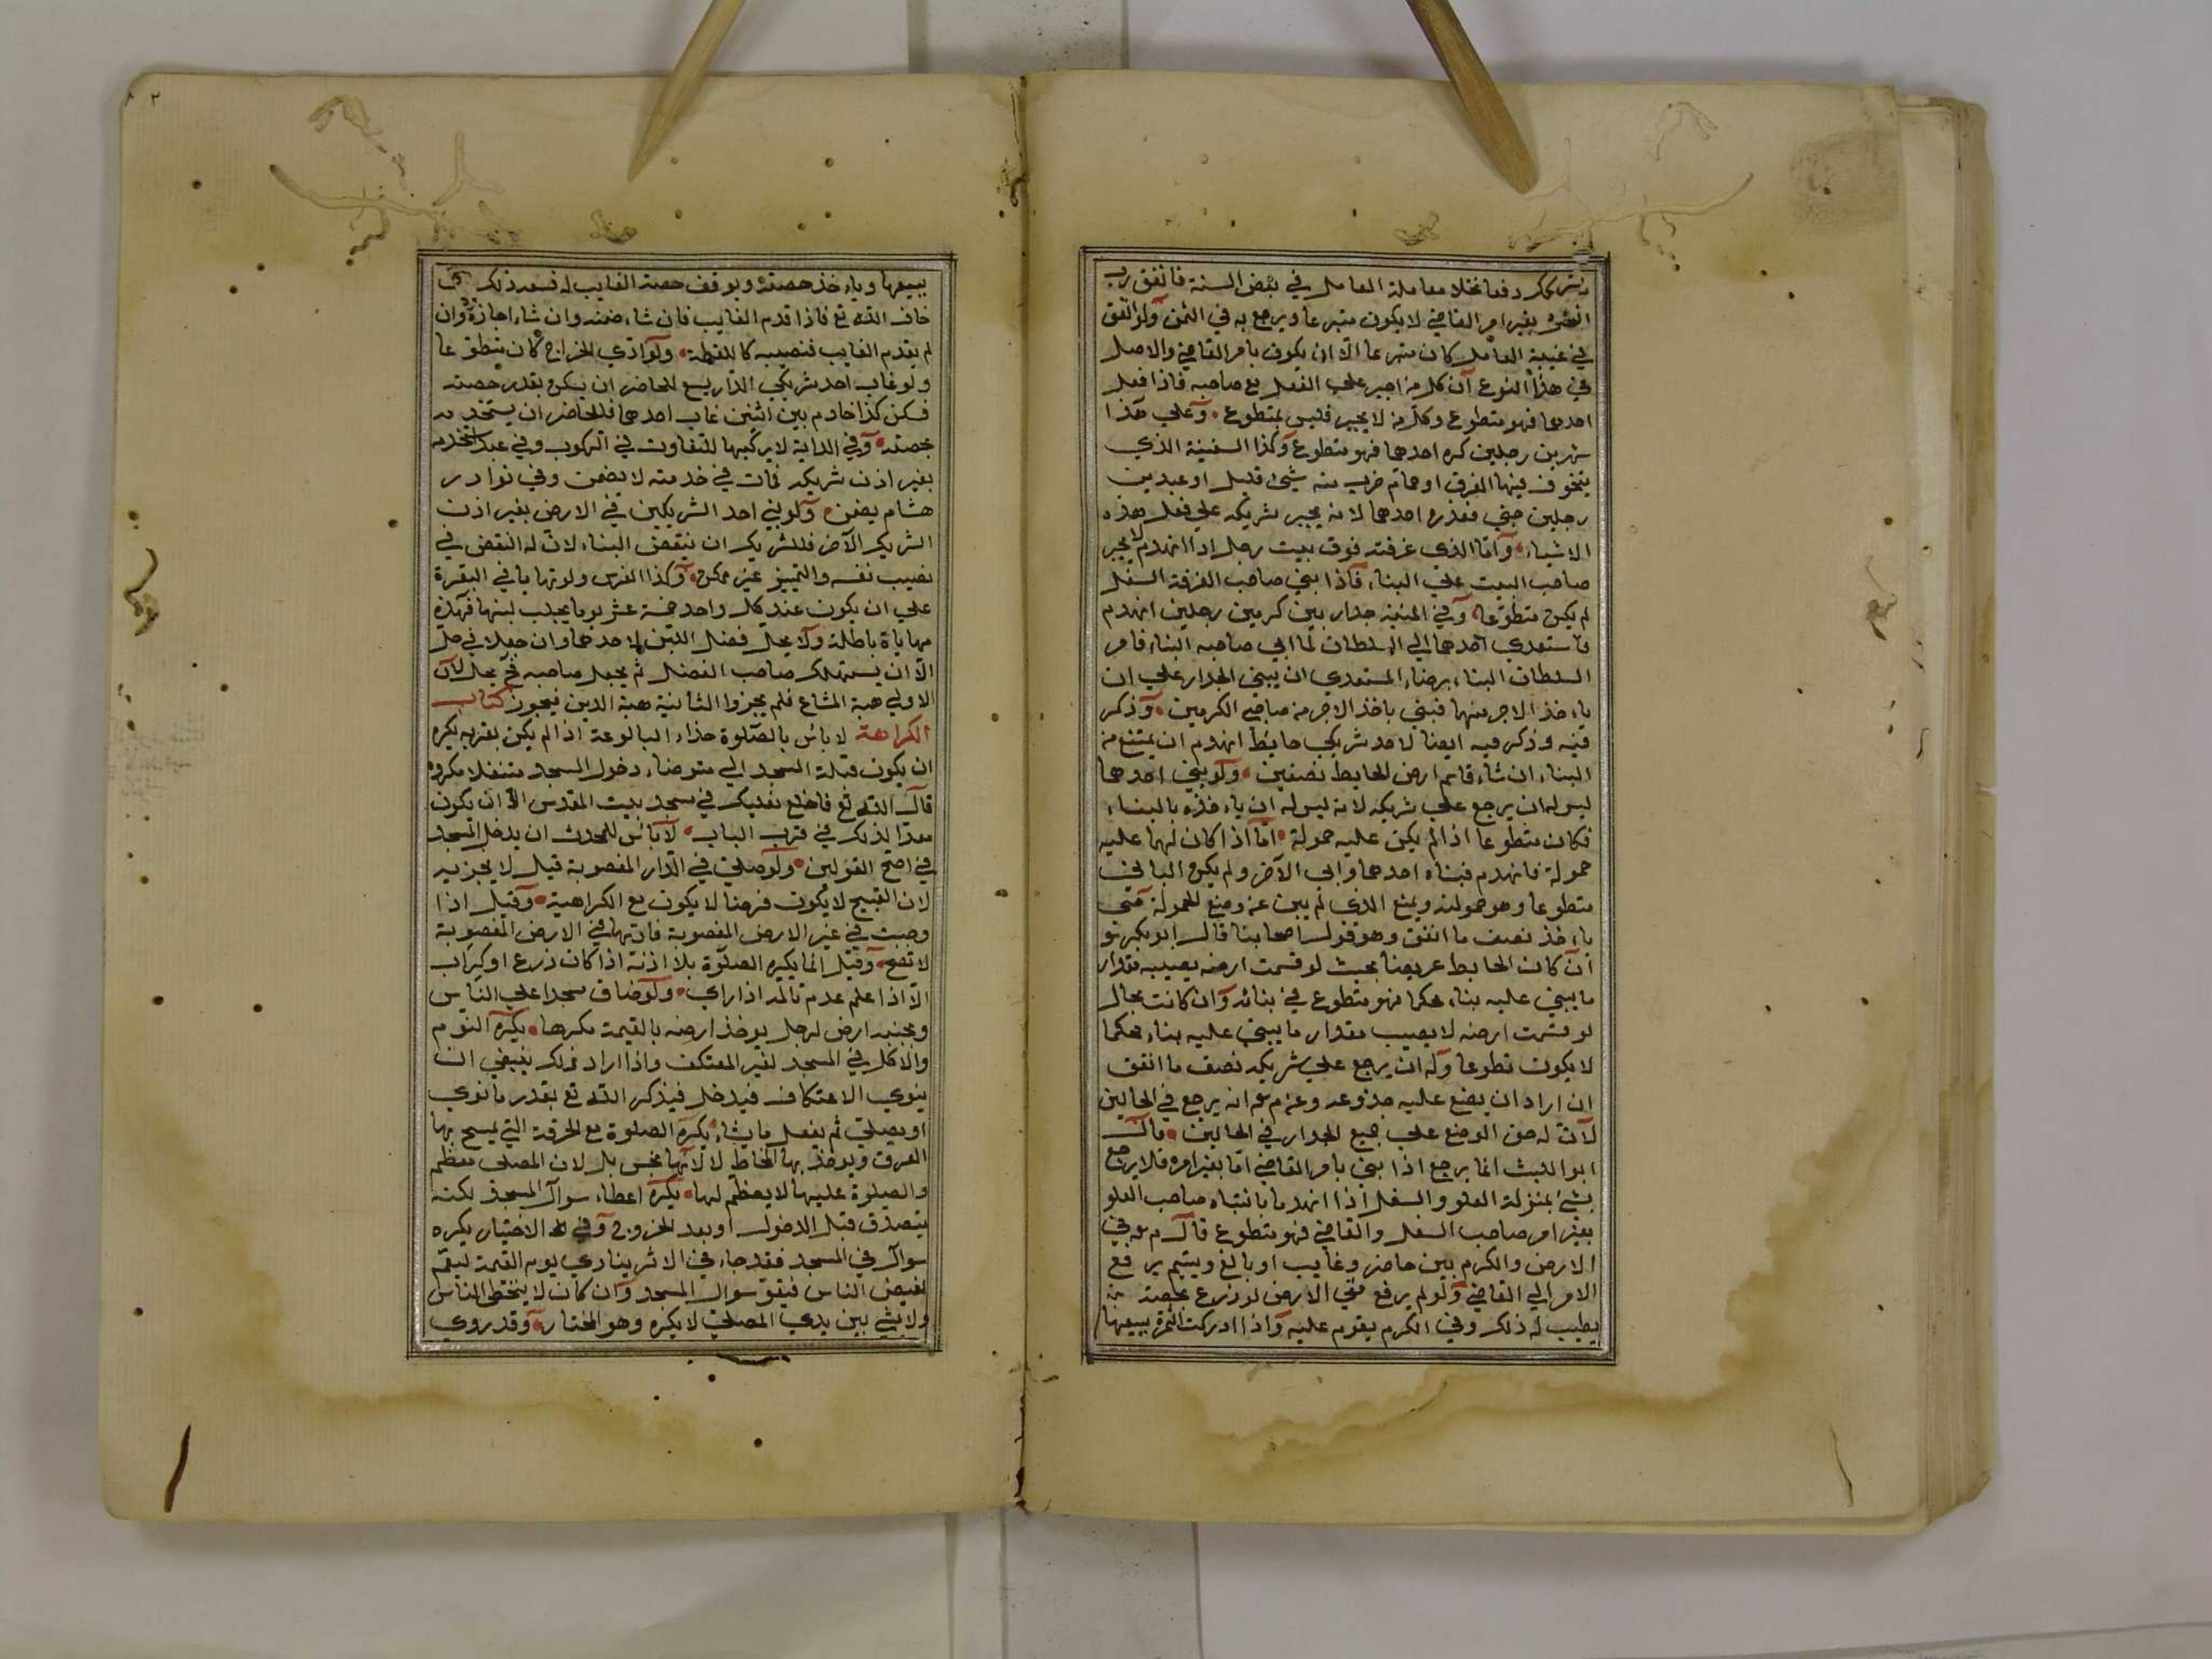 دفعا نخلا معاملة العامل في بعض السنة فانفق رب
بغير امر القاضي لا يكون متبرعا ويرجع به في الثمن ولو انفق
في غيبة العامل كان متبرعا الا ان يكون بامر القاضي والاصل
في هذا النوع ان كل من اجبر علي الفعل مع صاحبه فاذا فعل
احدهما فهو متطوع وكل من لا يجبر فليس بمتطوع وعلي هذا
نهر بين رجلين كره احدهما فهو متطوع وكذا السفينة الذي
يتخوف فيها الغرق او حمام خرب منه شيئ قليل او عبد بين
رجلين جني ففداه احدهما لانه يجبر شريكه علي فعل هذه
الاشياء واما الذي غرفته فوق بيت رجل اذا انهدم لا يجبر
صاحب البيت علي البناء فاذا بني صاحب الغرفة السفل
لم يكن متطوعا وفي المنية جدار بين كرمين رجلين انهدم
فاستعدي احدهما الي السلطان لما ابي صاحبه البناء فامر
السلطان البناء برضاء المستعدي ان يبني الجدار علي ان
ياءخذ الاجر منهما فبني ياخذ الاجر من صاحبي الكرمين وذكر
فيه وذكر فيه ايضا لاحد شريكي حايط انهدم ان يمتنع من
البناء ان شاء قاسم ارض الحايط نصفين ولو بني احدهما
ليس له ان يرجع علي شريكه لانه ليس له ان ياءخذه بالبناء
فكان متطوعا اذا لم يكن عليه حمولة اما اذا كان لهما عليه
حمولة فانهدم فبناه احدهما وابي الآخر ولم يكن الباني
متطوعا وهو حمولته ويمنع الذي لم يبن عن وضع الحمولة حتي
ياءخذ نصف ما انفق وهو قول اصحابنا قال ابو بكر هو
ان كان الحايط عريضا بحيث لو قسمت ارضه يصيبه مقدار
ما يبني عليه بناء محكما فهو متطوع في بنائه وان كانت بحال
لو قسمت ارضه لا يصيب مقدار ما يبني عليه بناء محكما
لا يكون تطوعا وله ان يرجع علي شريكه نصف ما انفق
ان اراد ان يضع عليه جذوعه وعن م عه انه يرجع في الحالين
لان له حق الوضع علي جميع الجدار في الحالين قال
ابو الليث انما يرجع اذا بني بامر القاضي اما بغير امره فلا يرجع
بشيئ بمنزلة العلو والسفل اذا انهدما بانشاه صاحب العلو
بغير امر صاحب السفل والقاضي فهو متطوع قال م عه في
الارض والكرم بين حاضر وغايب او بالغ ويتيم يرفع
الامر الي القاضي ولو لم يرفع حتي الارض لو زرع بحصته
يطيب له ذلك وفي الكرم يقوم عليه واذا ادركت الثمرة يبيعها
يبيعها وياءخذ حصته ويوقف حصة الغايب له فسعه ذلك
خاف الله تع فاذا قدم الغايب فان شاء ضمنه وان شاء اجازه وان
لم يقدم الغايب فنصيبه كاللقطة ولو ادي الخراج كان متطوعا
ولو غاب احد شريكي الدار يسع للحاضر ان يسكن بقدر حصته
فسكن كذا خادم بين اثنين غاب احدهما فللحاضر ان يستخدمه
بحصته وفي الدابة لا يركبها للتفاوت في الركوب وفي عبد استخدمه
بغير اذن شريكه فمات في خدمته لا يضمن وفي نوادر
هشام يضمن ولو بني احد الشريكين في الارض بغير اذن
الشريك الآخر فللشريك ان ينقض البناء لان له النقض في
نصيب نفسه والتمييز غير ممكن وكذا الغرس ولو تهايا في البقرة
علي ان يكون عند كل واحد خمسة عشر يوما يحلب لبنها فهذه
مهاياة باطلة ولا يحل فضل اللبن لاحدهما وان جعلا في حل
الا ان يستهلك صاحب الفضل ثم يجعل صاحبه فح يحل لان
الاولي هبة المشاع فلم يجز والثانية هبة الدين فيجوز كتاب
الكراهة لا باس بالصلوة حذاء البالوعة اذا لم يكن بقربه يكره
ان يكون قبلة المسجد الي متوضاء دخول المسجد متنعلا مكروه
قال الله تع فاخلع نعليك في مسجد بيت المقدس الا ان يكون
معدا لذلك في قرب الباب لا باس للمحدث ان يدخل المسجد
في اصح القولين ولو صلي في الدار المغصوبة قيل لا يجزيه
لان القبيح لا يكون فرضا لا يكون مع الكراهية وقيل اذا
وجبت في غير الارض المغصوبة فادتها في الارض المغصوبة
لا تصح وقيل انما يكره الصلوة بلا اذنه اذا كان زرع او كراب
الا اذا علم عدم تالمه اذا راي ولو ضاق مسجدا علي الناس
وبجنبه ارض لرجل يوخذ ارضه بالقيمة مكرها يكره النوم
والاكل في المسجد لغير المعتكف واذا اراد ذلك ينبغي ان
ينوي الاعتكاف فيدخل فيذكر الله تع بقدر ما نوي
او يصلي ثم يفعل ما يشاء يكره الصلوة مع الخرقة التي يمسح بها
العرق ويوخذ بها المخاط لا لانها نجس بل لان المصلي معظم
والصلوة عليها لا يعظم لها يكره اعطاء سوال المسجد لكنه
يتصدق قبل الدخول او بعد الخروج وفي الاختيار يكره
سوال في المسجد فقد جاء في الاثر ينادي يوم القيمة ليقم
بغيض الناس فيقو سوال المسجد وان كان لا يتخطي الناس
ولا يمشي بين يدي المصلي لا يكره وهو المختار وقد روي